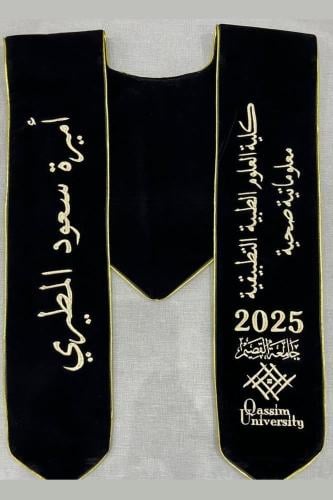 أميرة سعود المطيري
كلية العلوم الطبية التطبيقية
معلوماتية صحية
2025
جامعة القصيم
Qassim
University